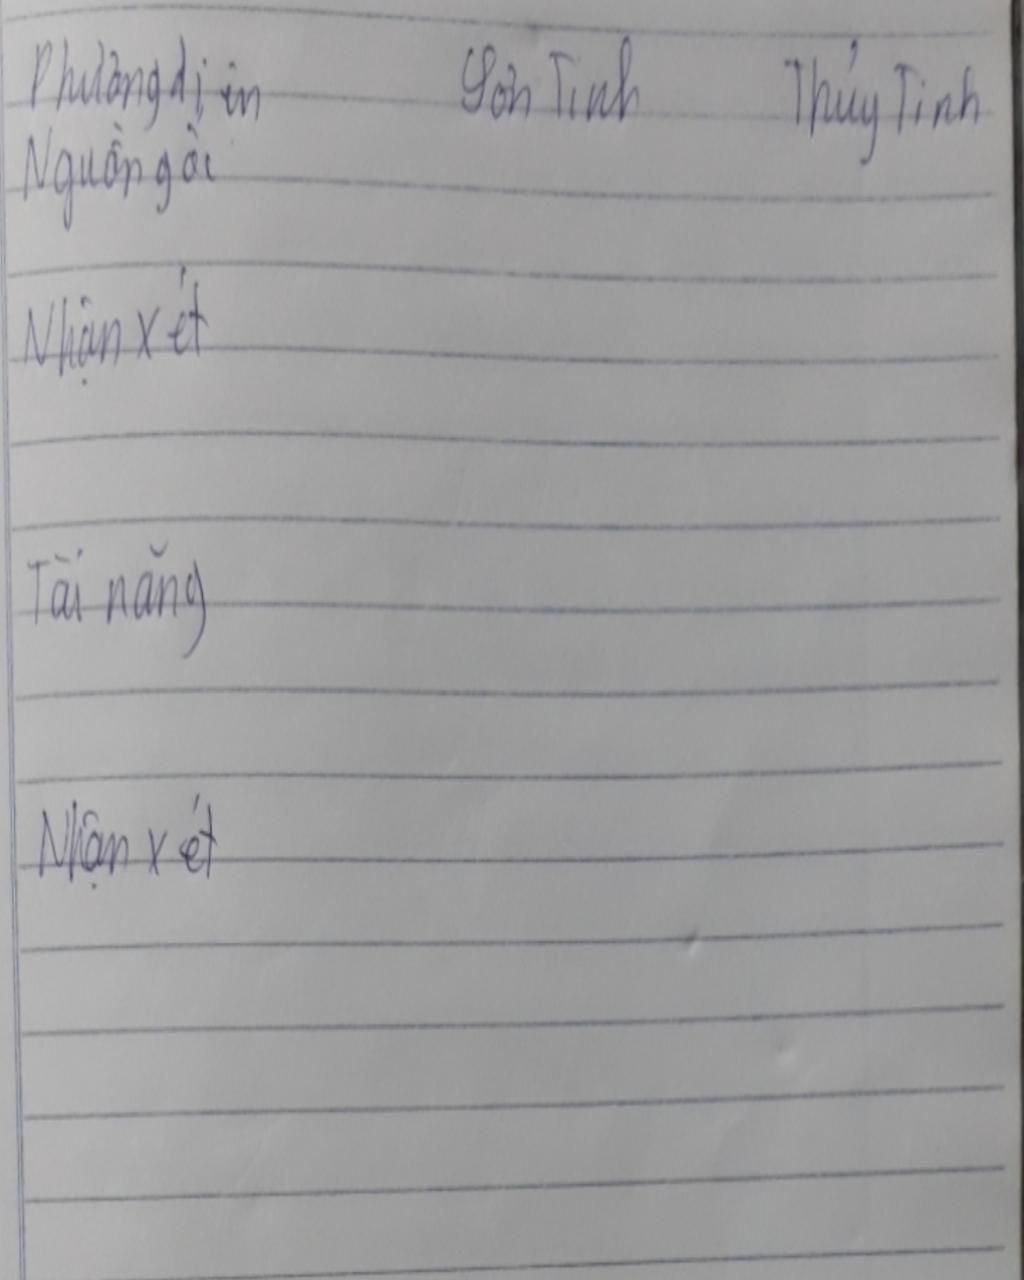 Phương diện Sơn Tinh Thủy Tinh
Nguồn gốc
Nhận xét
Tài năng
Nhận xét